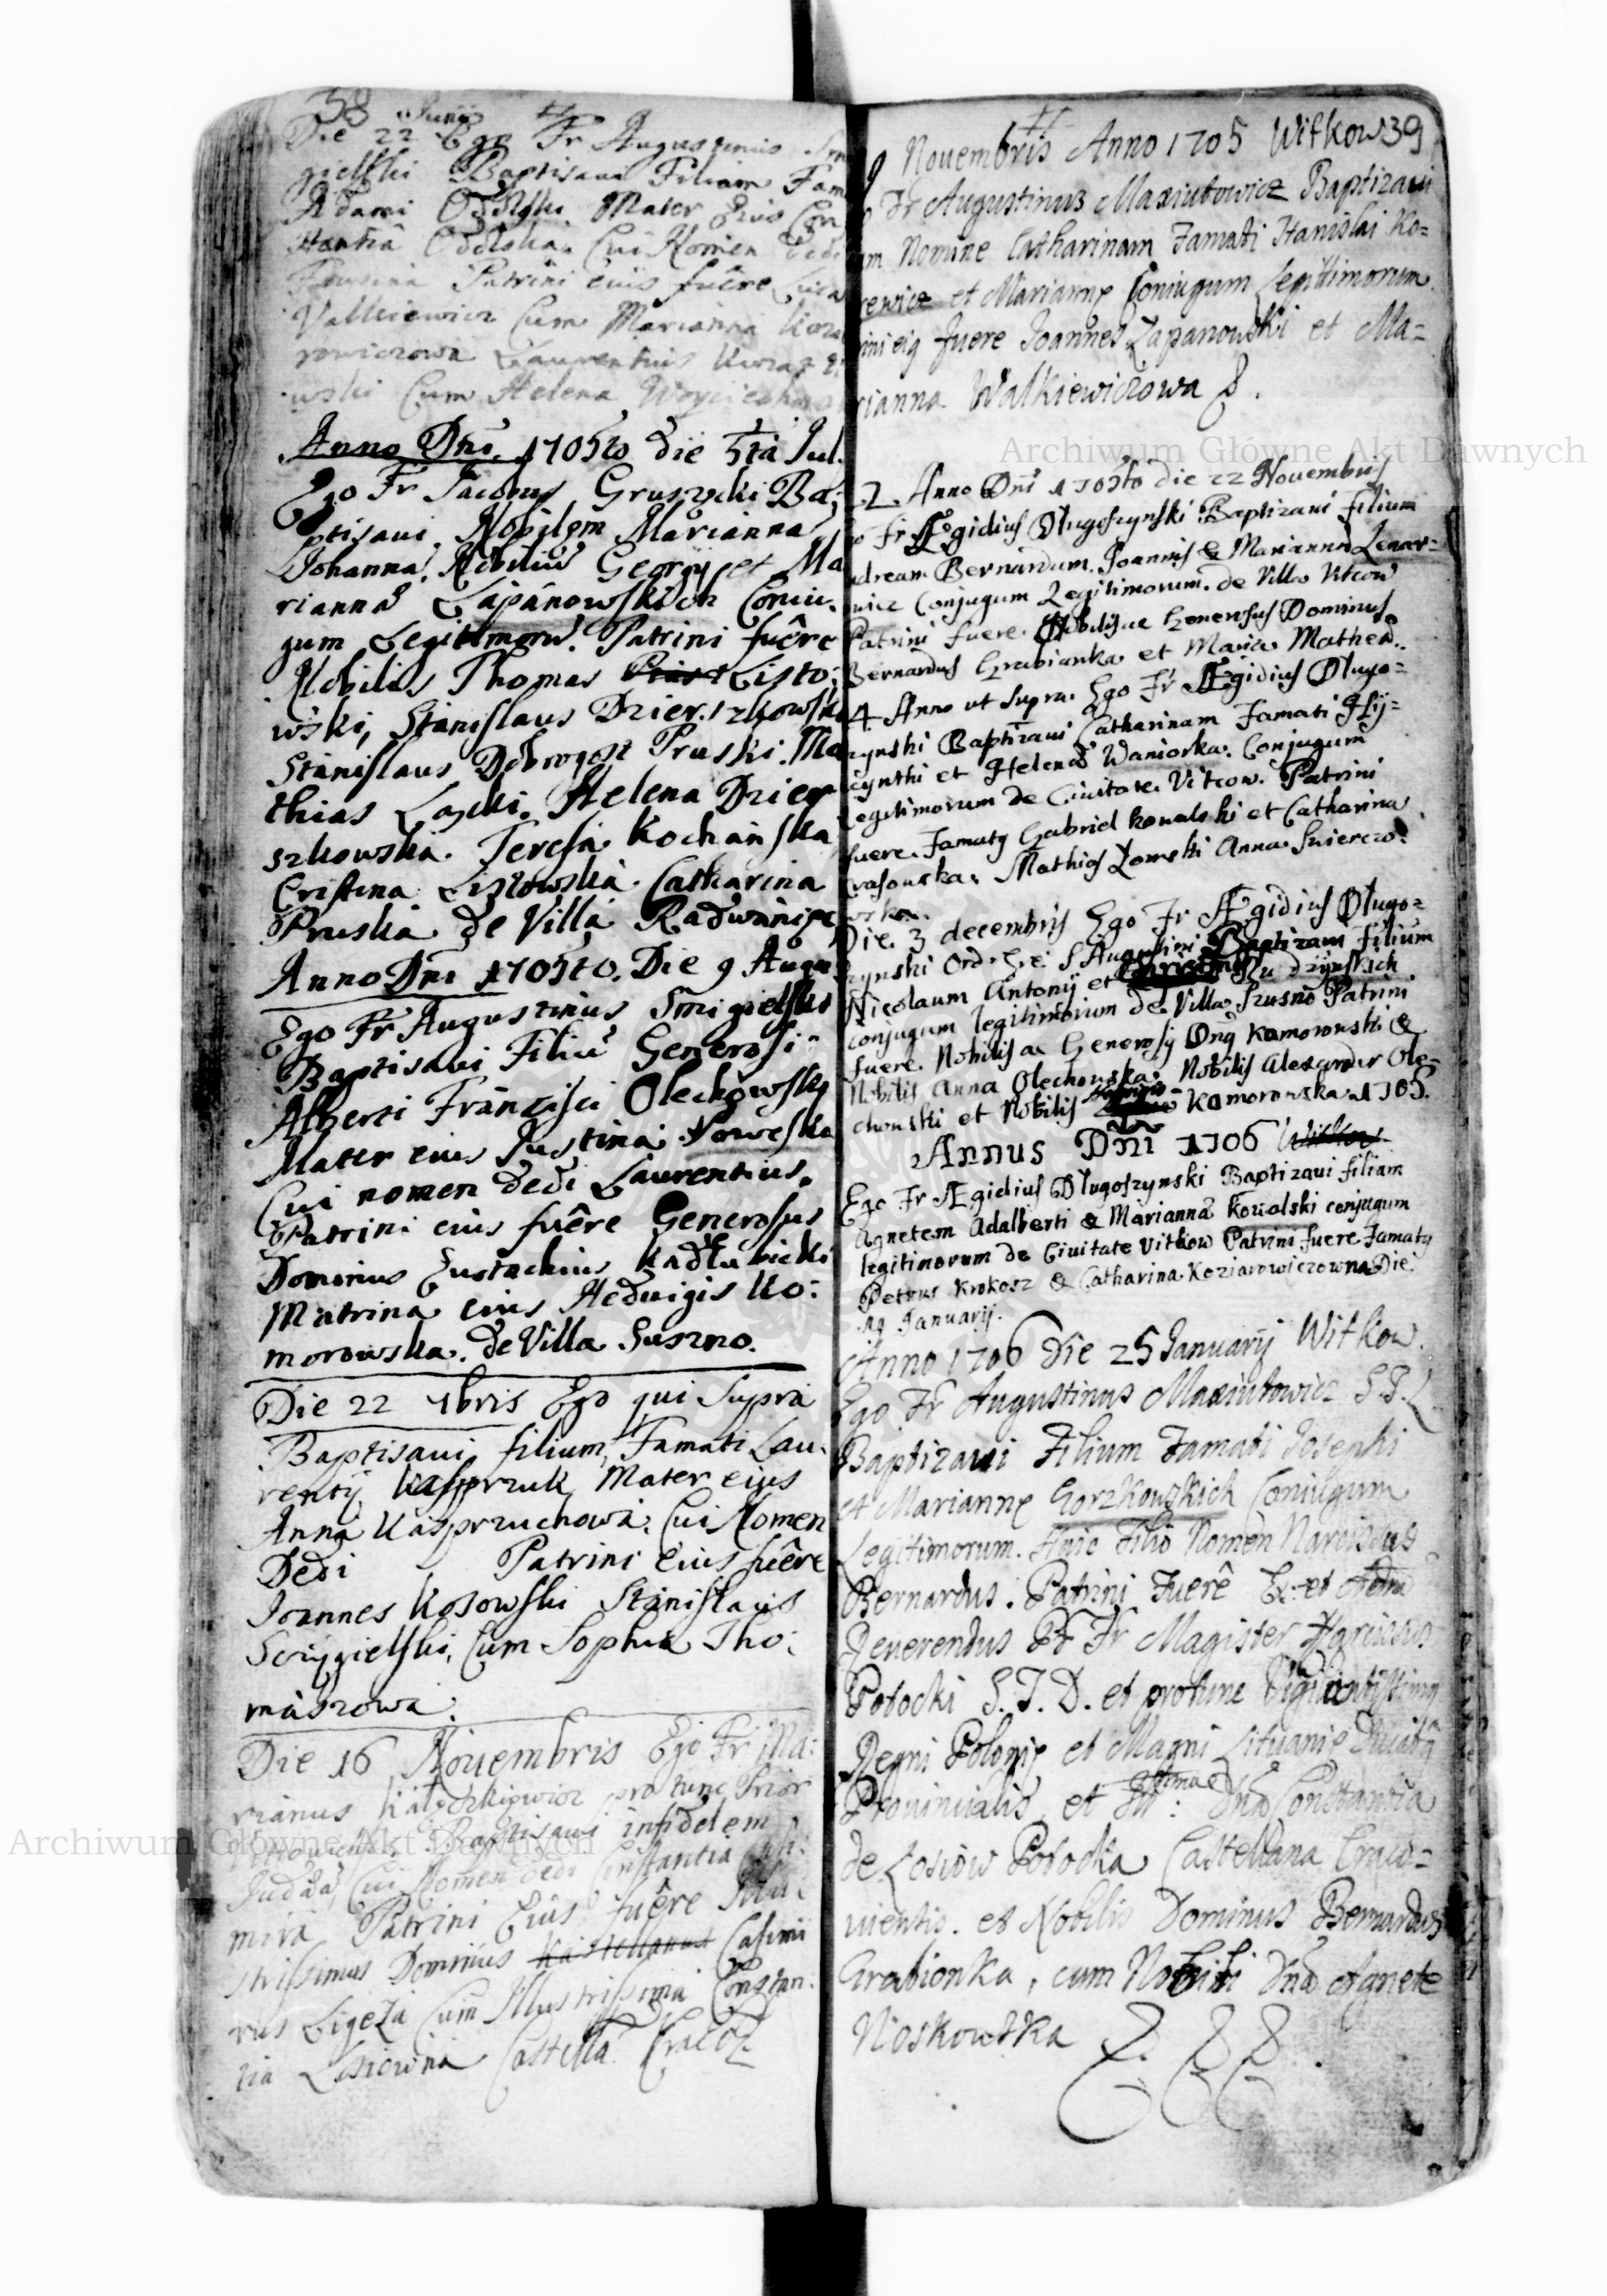 38 Junij
Die 22 Ego Fr Augustinus Smi
gielski Baptisavi Filiam Fam
Adami Mater Eius Con
stantia Cui Nomen Dedi
Patrini eius fuêre Luca
Valkiewicz Cum Marianna Koza
rowiczowa Laurentius
wski Cum Helena
Anno Dni. 1705to die 5ta Jul.
Ego Fr Jacobus Gruszycki Ba:
ptisavi Nobilem Marianna
Johanna, Nobiliu Georgij et Ma
rianna Łapanowskich Coniu:
gum Legitimoru. Patrini fuêre
Nobilis Thomas Listo:
wski, Stanislaus Dzierszkowski
Stanislaus Dobrogost Pruski. Ma
thias Łaski. Helena Dzier
szkowska. Teresia Kochanska
Cristina Listowska. Catharina
Pruska de Villa Radwanice
Anno Dni 1705to. Die 9 Augu
Ego Fr Augustinus Smigielski
Baptisavi Filiu Generosi:
Alberti Francisci Olechowsky
Mater eius Justina Noweska
Cui nomen dedi Laurentius.
Patrini eius fuêre Generosus
Dominus Eustachius Kadłubicki
Matrina eius Hedwigis Ko:
morowska. de Villa Suszno.
Die 22 7bris Ego qui Supra
Baptisavi filium, Famati Lau:
rentij Kasprzuk Mater eius
Anna Kasprzuchowa. Cui Nomen
Dedi Patrini Eius fuêre
Joannes Kosowski Stanislaus
Scrzygielski, Cum Sophia Tho:
maszowa.
Die 16 Novembris Ego Fr Ma:
rianus pro tunc Prior
Baptisavi infidelem
Judæa, Cui Nomen dedi Constantia Casi:
mira Patrini Eius fuêre Illu:
strissimus Dominus Kastellanus Casimi
rus Ligęza Cum Illustrissima Constan:
tia Łosiowna Castella Cracoz
9 Novembris Anno 1705 Witkow 39
o Fr Augustinus Maxiutowicz Baptizavi
am Nomine Catharinam Famati Stanislai Ko=
rewicz et Mariannę Coniugum Legittimorum.
ini eig Fuere Joannes Łapanowski et Ma=
rianna Walkiewiczowa
2. Anno Dni 1705to die 22 Novembris
o Fr Ægidius Dlugoszynski Baptizavi filium
ndream Bernardum. Joannis & Marianna Lenar=
wicz Conjugum Legitimorum. de Villa Vitcow
Patrini fuere. Nobilis ac Generosus Dominus
Bernardus Grabianka et Maria Mathea.
4 Anno ut supra. Ego Fr Ægidius Dlugo=
szynski Baptizavi Catharinam Famati Hij=
acynthi et Helena Waniorka. Conjugum
Legitimorum de Civitate. Vitcow. Patrini
fuere. Famaty Gabriel Kowalski et Catharina
Mathias Anna Swierczo:
wska.
Die. 3 decembris Ego Fr Ægidius Dlugo=
szynski Ord: Ere: S Augustini Baptizavi filium
Nicolaum Antonij et Budzynskich
conjugum legitimorum de Villa Szusno Patrini
fuere. Nobilis ac Generosy Dng Komorowski &
Nobilis Anna Olechowska. Nobilis Alexander Ole=
chowski et Nobilis Komorowska 1705.
Annus Dni 1706 Witkow
Ego Fr Ægidius Dlugoszynski Baptizavi filiam
Agnetem Adalberti & Marianna Kowalski conjugum
legitimorum de Civitate Vitkow Patrini fuere Famaty
Petrus Krokosz & Catharina Koziarowiczowna Die
19 Januarij.
Anno 1706 Die 25 Januarij Witkow.
Ego Fr Augustinus Maxiutowicz S.T.L
Baptizavi Filium Famati Josephi
et Mariannę Gorzkowskich Coniugum
Legitimorum. Huic Filio Nomen Narcissus
Bernardus. Patrini Fuerê Ex: et Adm
Reverendus Pr Fr Magister Narcissus
Potocki S.T.D. et protunc Vigilantissimg
Regni Polonię et Magni Lituanię Ducatg
Provincialis, et Illma Dna Constantia
de Łosiow Potocka Castellana Craco=
viensis. et Nobilis Dominus Bernardus
Grabionka, cum Nobili Dna Agnete
Noskowska
Archiwum Główne Akt Dawnych
Archiwum Główne Akt Dawnych